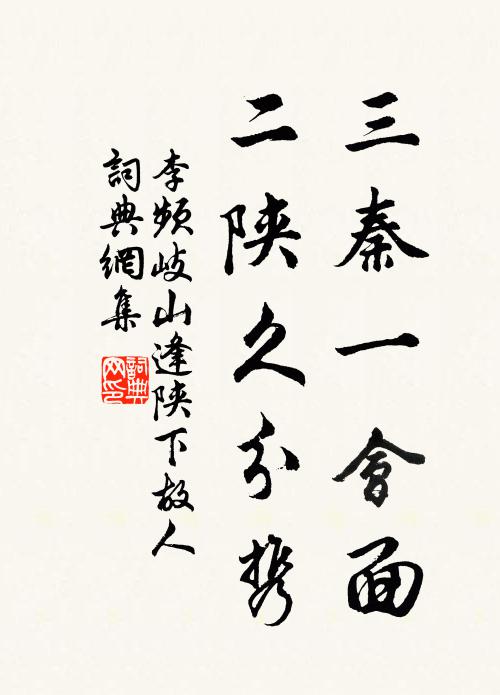 三秦一會面
二陝久分攜
李頻岐山逢陝下故人
詞典網集
詞典网印